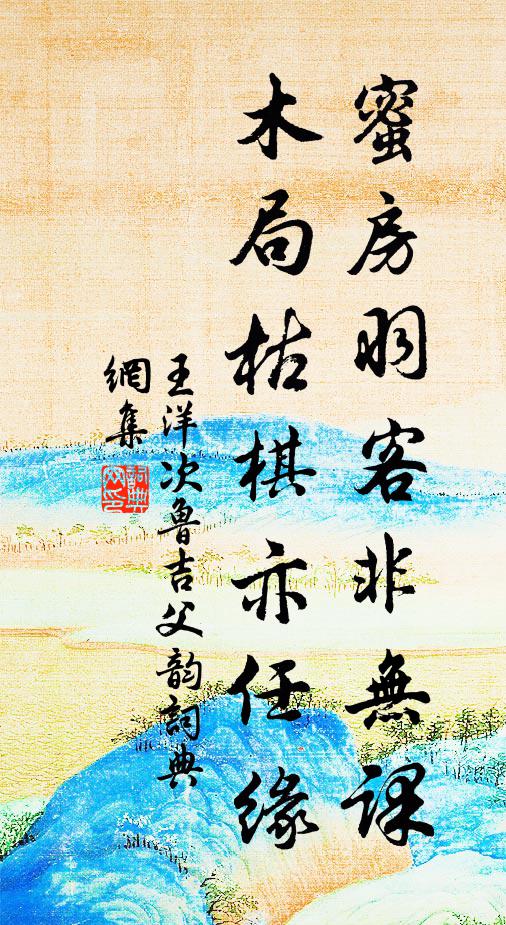 蜜房羽客非無課
木局枯棋亦任緣
王洋次魯吉父韻詞典
網集